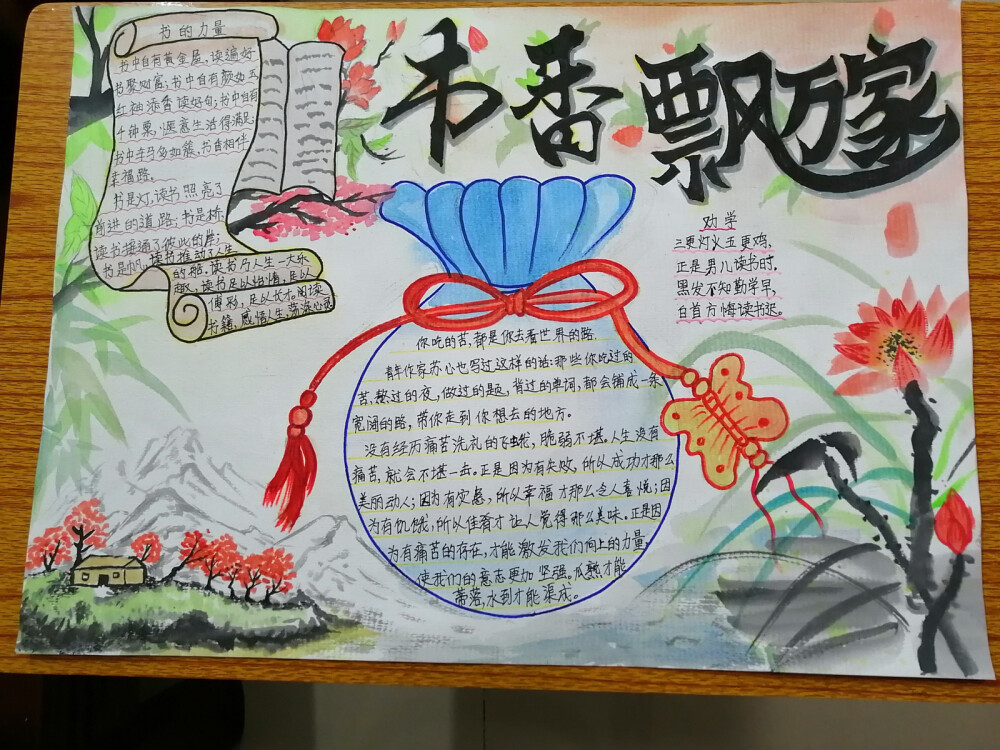 书香飘万家
书的力量
书中自有黄金屋，读遍好
书聚财富；书中自有颜如玉
红袖添香读好句；书中自有
千钟粟，惬意生活得满足
书中车马多如簇，书香相伴
幸福路。
书是灯，读书照亮了
前进的道路；书是桥，
读书接通了彼此的岸；
书是帆，读书推动了人生
的船。读书乃人生一大乐
趣，读书足以怡情，足以
傅彩，足以长才。阅读
书籍，感悟人生，荡涤心灵
劝学
三更灯火五更鸡，
正是男儿读书时，
黑发不知勤学早，
白首方悔读书迟。
你吃的苦，都是你去看世界的路
青年作家苏心也写过这样的话：那些你吃过的
苦，熬过的夜，做过的题，背过的单词，都会铺成一条
宽阔的路，带你走到你想去的地方。
没有经历痛苦洗礼的飞蛾，脆弱不堪。人生没有
痛苦，就会不堪一击。正是因为有失败，所以成功才那么
美丽动人；因为有灾患，所以幸福才那么令人喜悦；因
为有饥饿，所以佳肴才让人觉得那么美味。正是因
为有痛苦的存在，才能激发我们向上的力量，
使我们的意志更加坚强。瓜熟才能
蒂落，水到才能渠成。